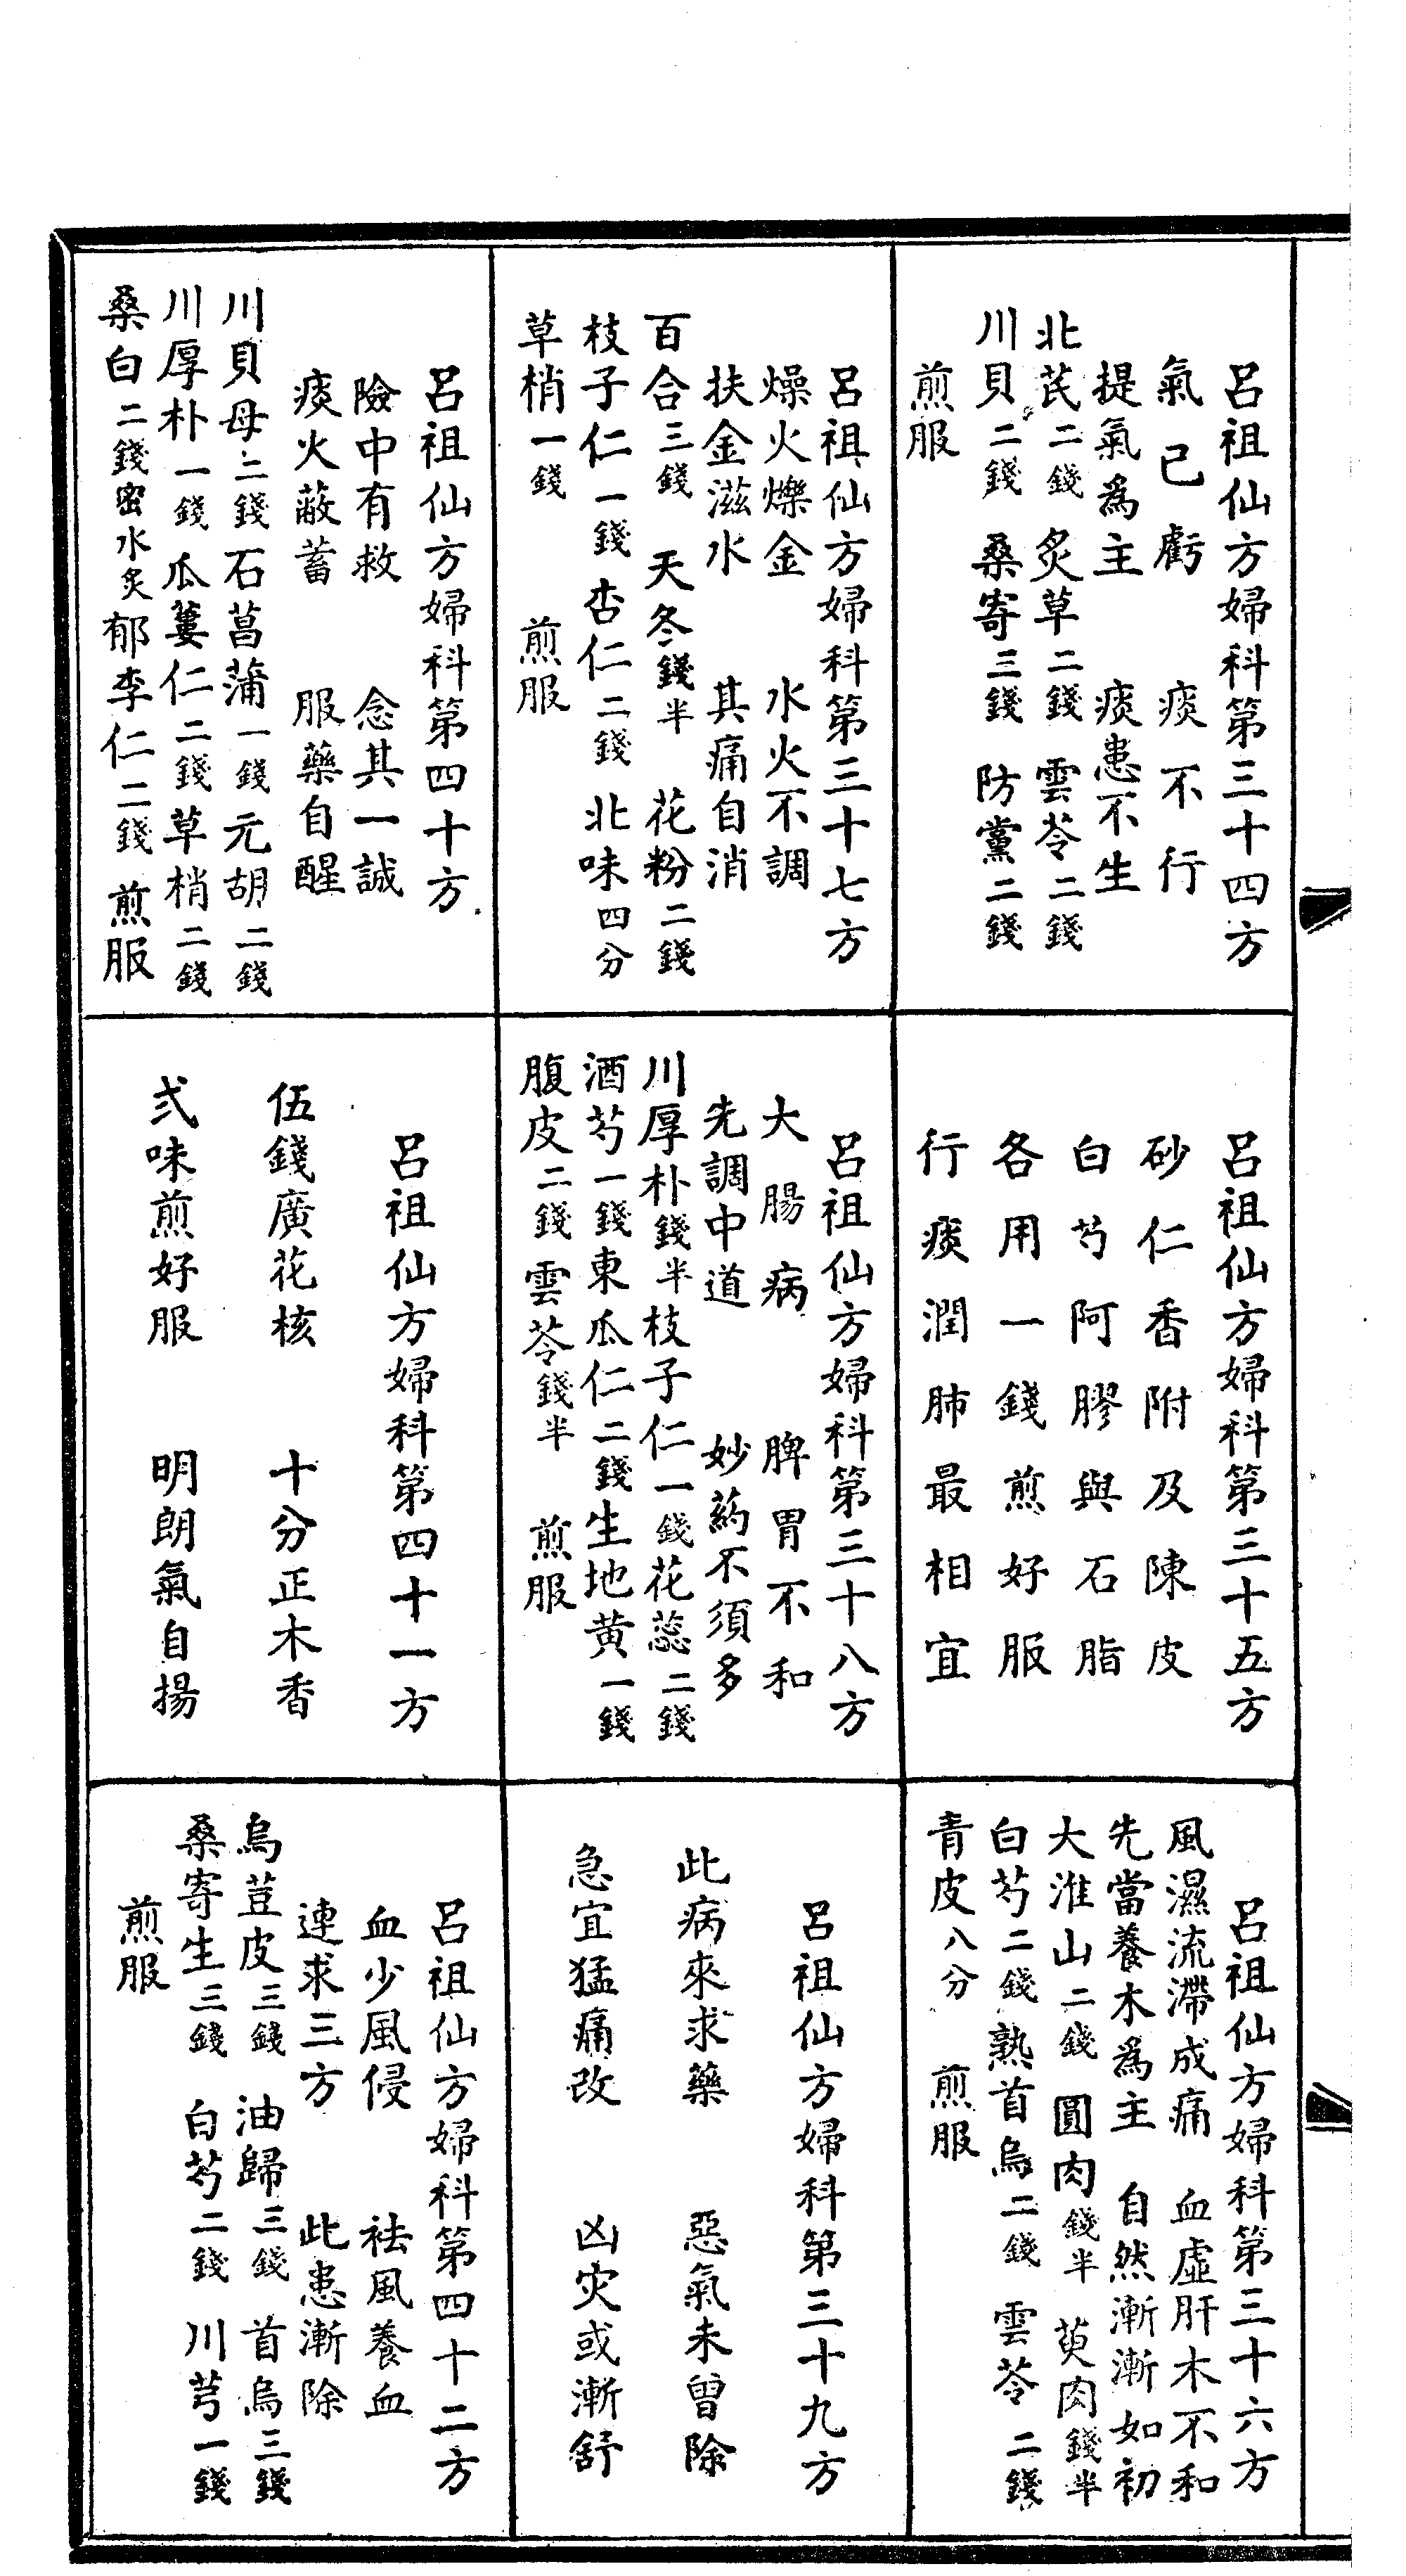 呂祖仙方婦科第三十四方
氣已虧　痰不行
提氣爲主　痰患不生
北芪二錢　炙草二錢　雲苓二錢
川貝二錢　桑寄三錢　防黨二錢
煎服
呂祖仙方婦科第三十五方
砂仁香附及陳皮
白芍阿膠與石脂
各用一錢煎好服
行痰潤肺最相宜
呂祖仙方婦科第三十六方
風濕流滯成痛　血虛肝木不和
先當養木爲主　自然漸漸如初
大淮山二錢　圓肉錢半　萸肉錢半
白芍二錢熟首烏二錢　雲苓二錢
青皮八分　煎服
呂祖仙方婦科第三十七方
燥火爍金　水火不調
扶金滋水　其痛自消
百合三錢　天冬錢半　花粉二錢
枝子仁一錢　杏仁二錢　北味四分
草梢一錢　煎服
呂祖仙方婦科第三十八方
大腸病　脾胃不和
先調中道　妙葯不須多
川厚朴錢半枝子仁一錢花蕊二錢
酒芍一錢東瓜仁二錢生地黄一錢
腹皮二錢雲苓錢半　煎服
呂祖仙方婦科第三十九方
此病來求藥　惡氣未曾除
急宜猛痛改　凶灾或漸舒
呂祖仙方婦科第四十方
險中有救　念其一誠
痰火蔽蓄　服藥自醒
川貝母二錢石菖蒲一錢元胡二錢
川厚朴一錢瓜蔞仁二錢草梢二錢
桑白二錢密水炙郁李仁二錢　煎服
呂祖仙方婦科第四十一方
伍錢廣花核　十分正木香
弍味煎好服　明朗氣自揚
呂祖仙方婦科第四十二方
血少風侵　祛風養血
連求三方　此患漸除
烏荳皮三錢　油歸三錢　首烏三錢
桑寄生三錢　白芍二錢　川芎一錢
煎服